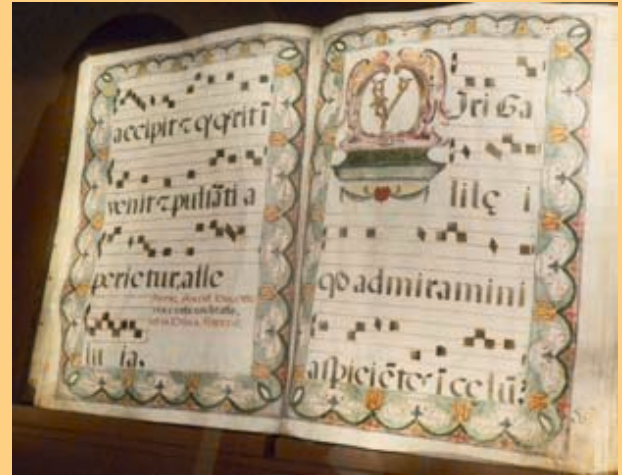 accipit ⁊ q̄ q̄rit ī
venit ⁊ pulsāti a
perietur, alle
lu ia.
Iri Ga
lilę i
qð admiramini
aſpiciēteſ ī celū?